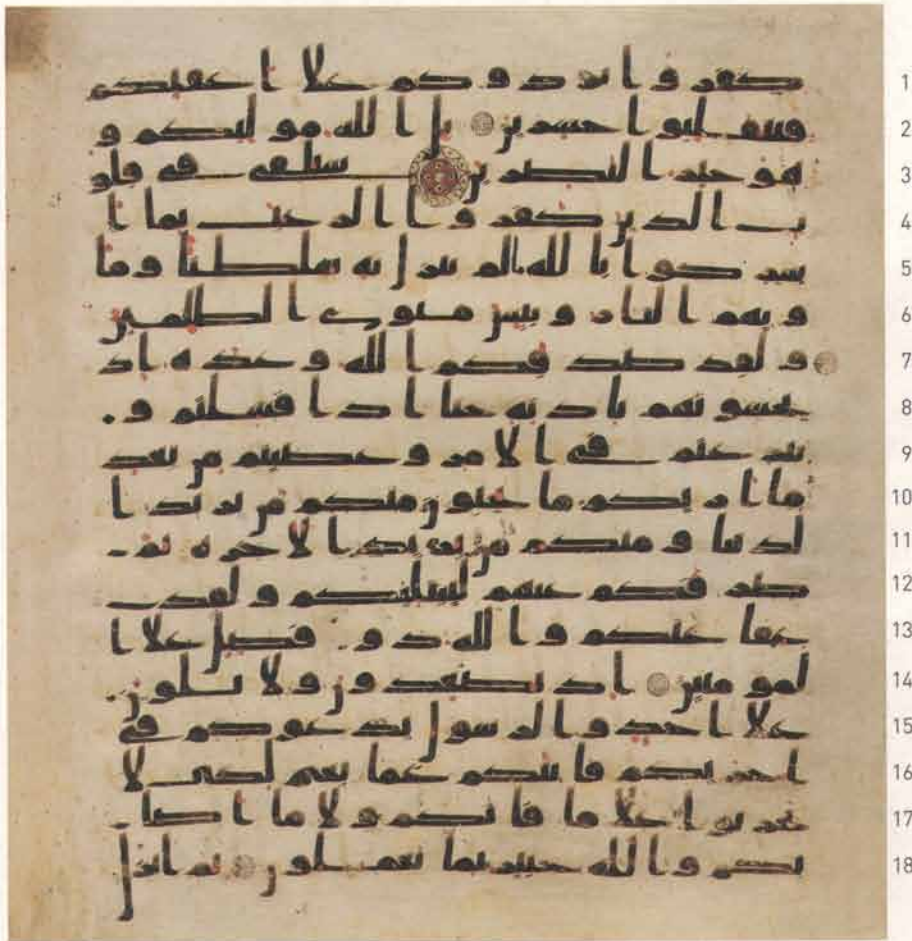 1 كفروا يردوكم علا اعقبكم
2 فتنقلبوا خسرين بل الله موليكم و
3 هو خير النصرين سنلقى فى قلو
4 ب الذين كفروا الرعب بما ا
5 شركوا بالله ما لم ينزل به سلطنا وما
6 ويهم النار وبيس مثوى الظلمين
7 ولقد صدقكم الله وعده اذ
8 تحسونهم باذنه حتا اذا فشلتم و
9 تنزعتم فى الامر وعصيتم من بعد
10 ما اريكم ما تحبون منكم من يريد ا
11 لدنيا ومنكم من يريد الاخرة ثم
12 صرفكم عنهم ليبتليكم ولقد
13 عفا عنكم والله ذو فضل علا ا
14 لمومنين اذ تصعدون ولا تلون
15 علا احد والرسول يدعوكم فى
16 اخريكم فاثبكم غما بغم لكى لا
17 تحزنوا علا ما فاتكم ولا ما اصا
18 بكم والله خبير بما تعملون ثم انزل